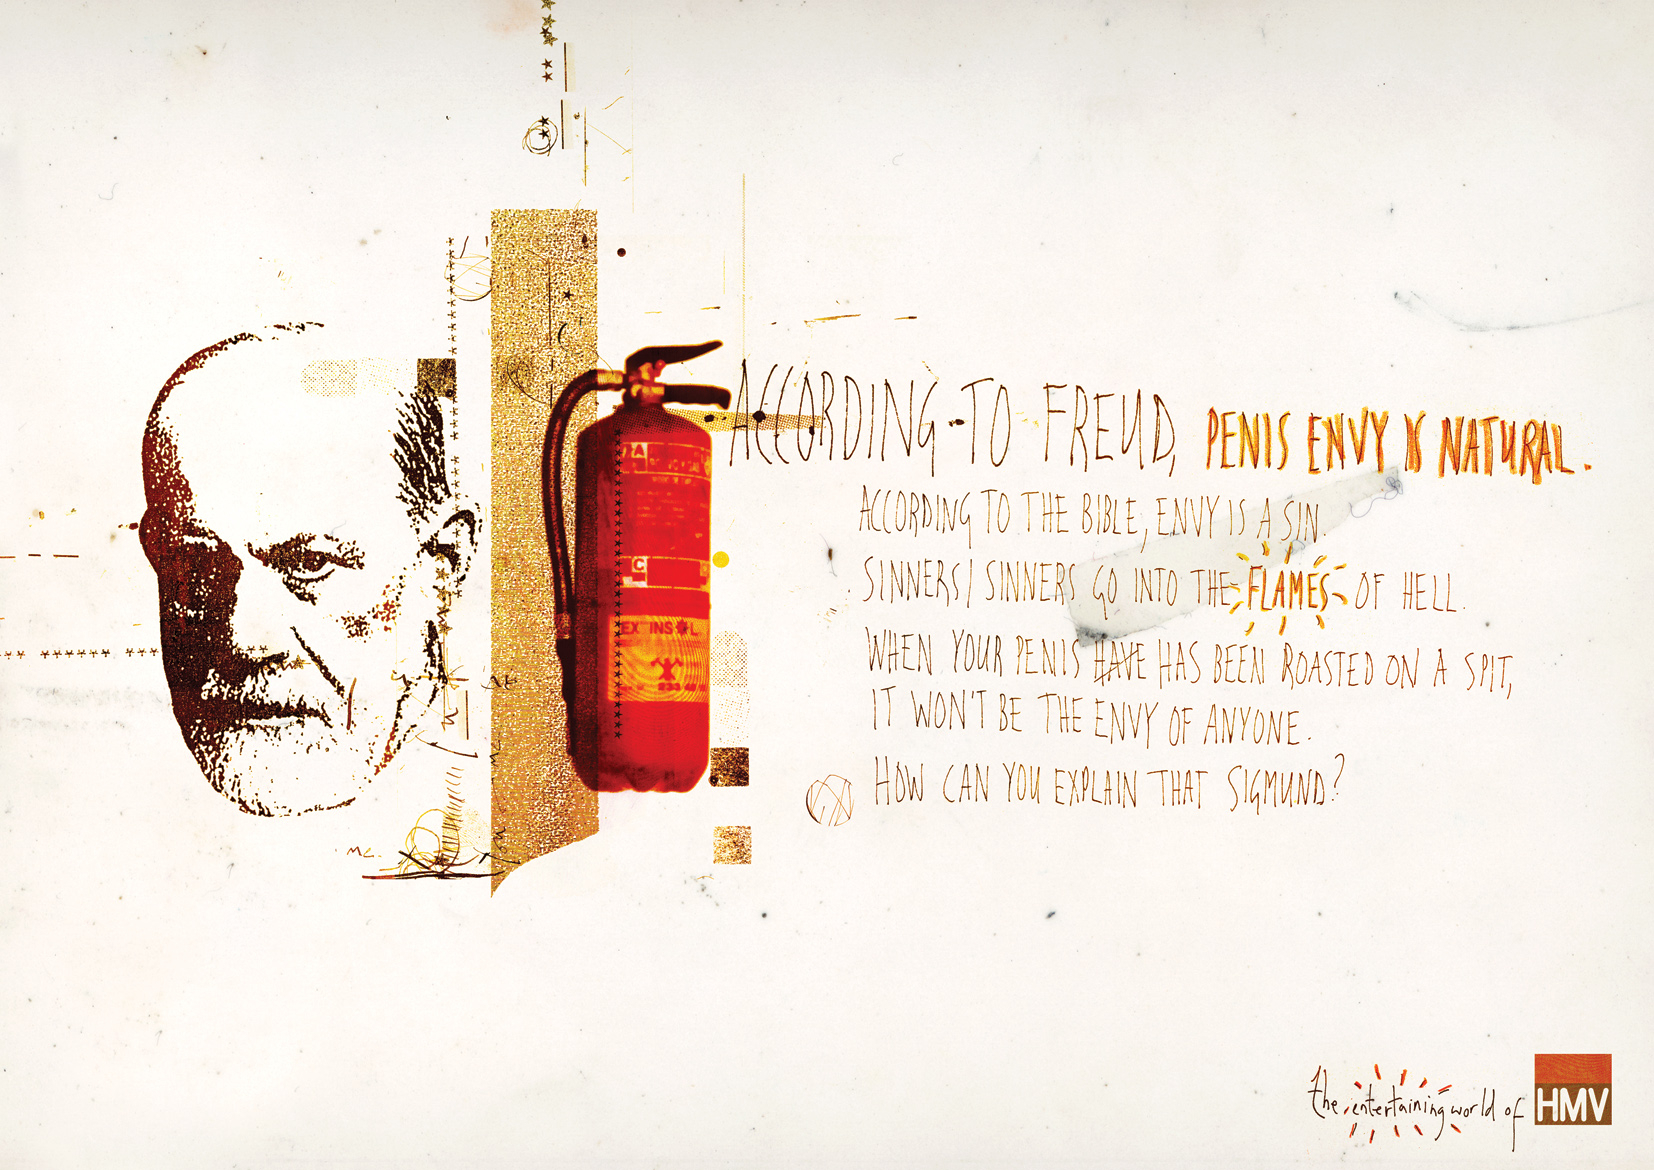 ACCORDING TO FREUD, PENIS ENVY IS NATURAL.
ACCORDING TO THE BIBLE, ENVY IS A SIN.
SINNERS/ SINNERS GO INTO THE FLAMES OF HELL.
WHEN YOUR PENIS HAVE HAS BEEN ROASTED ON A SPIT,
IT WON'T BE THE ENVY OF ANYONE.
HOW CAN YOU EXPLAIN THAT SIGMUND?
A
C
the entertaining world of HMV